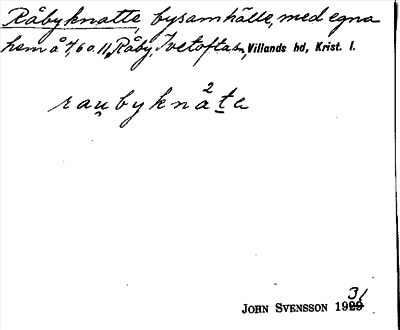 Råbyknatte, bysamhälle, med egna
hem å 7/60.11, Råby, Ivetofta sn, Villands hd, Krist. l.
rau̯byknå²te
JOHN SVENSSON 1931